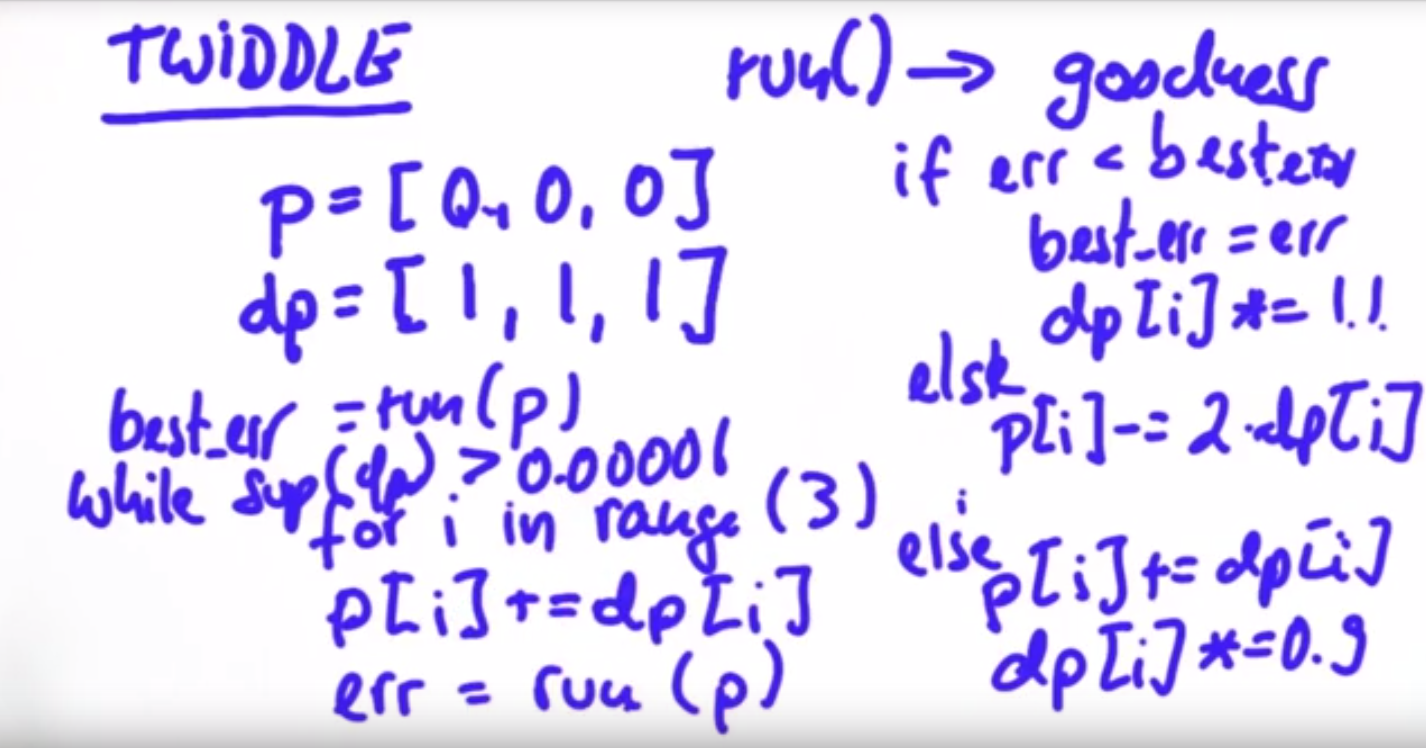 TWIDDLE
p = [0, 0, 0]
dp = [1, 1, 1]
best_err = run(p)
while sum(dp) > 0.00001
for i in range (3)
p[i] += dp[i]
err = run (p)
run() → goodness
if err < best_err
best_err = err
dp[i] *= 1.1
else
p[i] -= 2·dp[i]
⋮
else
p[i] += dp[i]
dp[i] *= 0.9